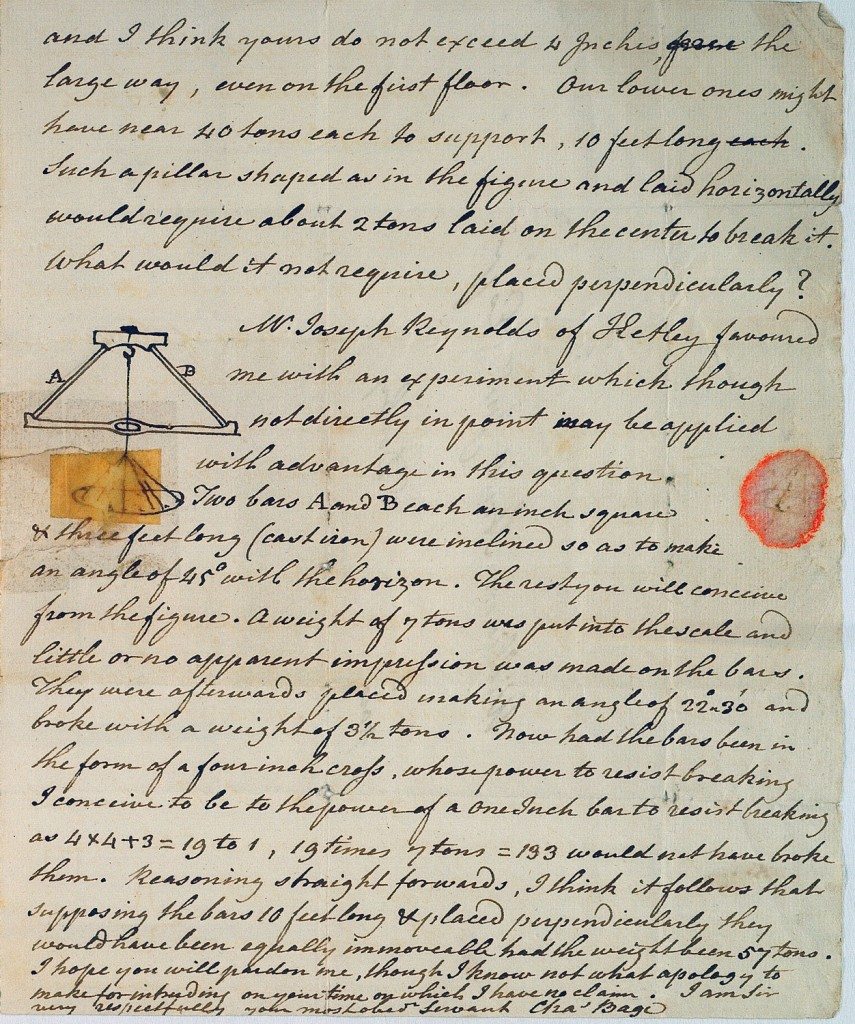 and I think yours do not exceed 4 Inches, the
large way, even on the first floor. Our lower ones might
have near 40 tons each to support, 10 feet long each.
Such a pillar shaped as in the figure and laid horizontally
would require about 2 tons laid on the center to break it.
What would it not require, placed perpendicularly?
Mr. Joseph Reynolds of Ketley favoured
me with an experiment which though
not directly in point may be applied
with advantage in this question.
A B
Two bars A and B each an inch square
& three feet long (cast iron) were inclined so as to make
an angle of 45° with the horizon. The rest you will conceive
from the figure. A weight of 7 tons was put into the scale and
little or no apparent impression was made on the bars.
They were afterwards placed making an angle of 22°.30' and
broke with a weight of 3½ tons. Now had the bars been in
the form of a four inch cross, whose power to resist breaking
I conceive to be to the power of a one Inch bar to resist breaking
as 4×4+3=19 to 1, 19 times 7 tons = 133 would not have broke
them. Reasoning straight forwards, I think it follows that
supposing the bars 10 feet long & placed perpendicularly they
would have been equally immoveable had the weight been 57 tons.
I hope you will pardon me, though I know not what apology to
make for intruding on your time on which I have no claim. I am Sir
very respectfully your most obedt Servant Chas Bage